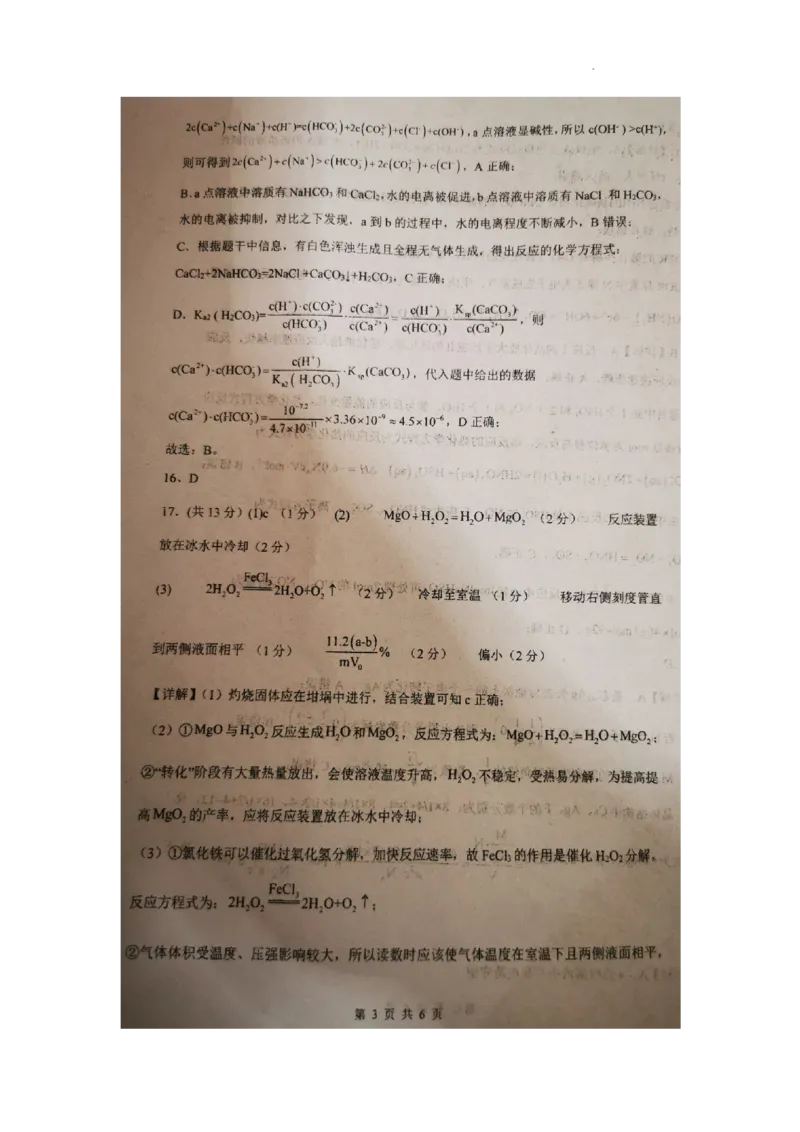 2c(Ca²⁺)+c(Na⁺)+c(H⁺)=c(HCO₃⁻)+2c(CO₃²⁻)+c(Cl⁻)+c(OH⁻)，a 点溶液显碱性，所以 c(OH⁻)>c(H⁺)，
则可得到2c(Ca²⁺)+c(Na⁺)>c(HCO₃⁻)+2c(CO₃²⁻)+c(Cl⁻)，A 正确；
B. a 点溶液中溶质有 NaHCO₃ 和 CaCl₂，水的电离被促进，b 点溶液中溶质有 NaCl 和 H₂CO₃，
水的电离被抑制，对比之下发现，a 到 b 的过程中，水的电离程度不断减小，B 错误；
C、根据题干中信息，有白色浑浊生成且全程无气体生成，得出反应的化学方程式：
CaCl₂+2NaHCO₃=2NaCl+CaCO₃↓+H₂CO₃，C 正确；
D．Ka₂（H₂CO₃）= c(H⁺)·c(CO₃²⁻)/c(HCO₃⁻) · c(Ca²⁺)/c(Ca²⁺) = c(H⁺)/c(HCO₃⁻) · Ksp(CaCO₃)/c(Ca²⁺)，则
c(Ca²⁺)·c(HCO₃⁻)= c(H⁺)/Ka2(H₂CO₃) ·Ksp(CaCO₃)，代入题中给出的数据
c(Ca²⁺)·c(HCO₃⁻)= 10⁻⁷·²/4.7×10⁻¹¹ ×3.36×10⁻⁹≈4.5×10⁻⁶，D 正确；
故选：B。
16、D
17．(共 13 分) (1)c （1 分） (2) MgO+H₂O₂=H₂O+MgO₂ （2 分） 反应装置
放在冰水中冷却（2 分）
(3) 2H₂O₂ =FeCl₃= 2H₂O+O₂↑ （2 分） 冷却至室温 （1 分） 移动右侧刻度管直
到两侧液面相平 （1 分） 11.2(a-b)/mV₀ % （2 分） 偏小（2 分）
【详解】（1）灼烧固体应在坩埚中进行，结合装置可知 c 正确；
（2）①MgO 与 H₂O₂ 反应生成 H₂O 和 MgO₂，反应方程式为：MgO+H₂O₂=H₂O+MgO₂；
②“转化”阶段有大量热量放出，会使溶液温度升高，H₂O₂ 不稳定，受热易分解，为提高提
高 MgO₂ 的产率，应将反应装置放在冰水中冷却；
（3）①氯化铁可以催化过氧化氢分解，加快反应速率，故 FeCl₃ 的作用是催化 H₂O₂ 分解。
反应方程式为：2H₂O₂ =FeCl₃= 2H₂O+O₂↑；
②气体体积受温度、压强影响较大，所以读数时应该使气体温度在室温下且两侧液面相平，
第 3 页 共 6 页